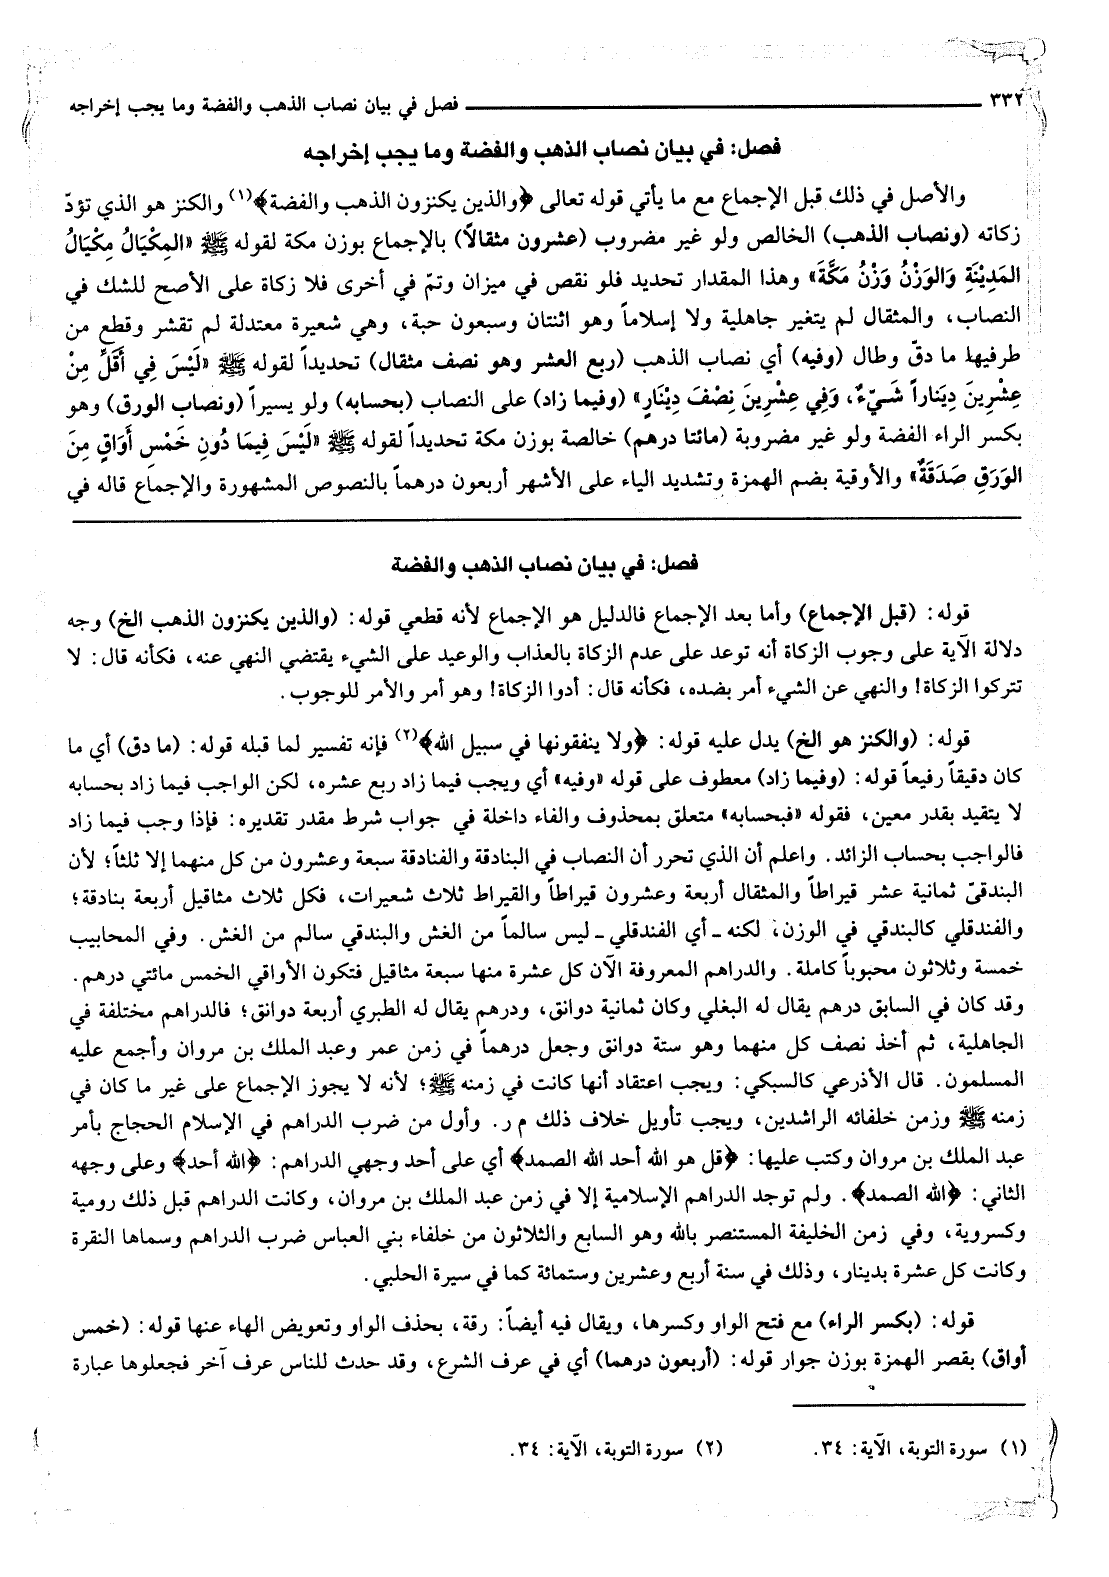 ٣٣٢ فصل في بيان نصاب الذهب والفضة وما يجب إخراجه
فصل: في بيان نصاب الذهب والفضة وما يجب إخراجه
والأصل في ذلك قبل الإجماع مع ما يأتي قوله تعالى ﴿والذين يكنزون الذهب والفضة﴾(١) والكنز هو الذي تؤدّ
زكاته (ونصاب الذهب) الخالص ولو غير مضروب (عشرون مثقالاً) بالإجماع بوزن مكة لقوله ﷺ «المِكْيَالُ مِكْيَالُ
المَدِينَةِ وَالوَزْنُ وَزْنُ مَكَّةَ» وهذا المقدار تحديد فلو نقص في ميزان وتمّ في أخرى فلا زكاة على الأصح للشك في
النصاب، والمثقال لم يتغير جاهلية ولا إسلاماً وهو اثنتان وسبعون حبة، وهي شعيرة معتدلة لم تقشر وقطع من
طرفيها ما دقّ وطال (وفيه) أي نصاب الذهب (ربع العشر وهو نصف مثقال) تحديداً لقوله ﷺ «لَيْسَ فِي أَقَلِّ مِنْ
عِشْرِينَ دِينَاراً شَيْءٌ، وَفِي عِشْرِينَ نِصْفَ دِينَارٍ» (وفيما زاد) على النصاب (بحسابه) ولو يسيراً (ونصاب الورق) وهو
بكسر الراء الفضة ولو غير مضروبة (مائتا درهم) خالصة بوزن مكة تحديداً لقوله ﷺ «لَيْسَ فِيمَا دُونَ خَمْسِ أَوَاقٍ مِنَ
الوَرَقِ صَدَقَةٌ» والأوقية بضم الهمزة وتشديد الياء على الأشهر أربعون درهماً بالنصوص المشهورة والإجماع قاله في
فصل: في بيان نصاب الذهب والفضة
قوله: (قبل الإجماع) وأما بعد الإجماع فالدليل هو الإجماع لأنه قطعي قوله: (والذين يكنزون الذهب الخ) وجه
دلالة الآية على وجوب الزكاة أنه توعد على عدم الزكاة بالعذاب والوعيد على الشيء يقتضي النهي عنه، فكأنه قال: لا
تتركوا الزكاة! والنهي عن الشيء أمر بضده، فكأنه قال: أدوا الزكاة! وهو أمر والأمر للوجوب.
قوله: (والكنز هو الخ) يدل عليه قوله: ﴿ولا ينفقونها في سبيل الله﴾(٢) فإنه تفسير لما قبله قوله: (ما دق) أي ما
كان دقيقاً رفيعاً قوله: (وفيما زاد) معطوف على قوله «وفيه» أي ويجب فيما زاد ربع عشره، لكن الواجب فيما زاد بحسابه
لا يتقيد بقدر معين، فقوله «فبحسابه» متعلق بمحذوف والفاء داخلة في جواب شرط مقدر تقديره: فإذا وجب فيما زاد
فالواجب بحساب الزائد. واعلم أن الذي تحرر أن النصاب في البنادقة والفنادقة سبعة وعشرون من كل منهما إلا ثلثاً؛ لأن
البندقيّ ثمانية عشر قيراطاً والمثقال أربعة وعشرون قيراطاً والقيراط ثلاث شعيرات، فكل ثلاث مثاقيل أربعة بنادقة؛
والفندقلي كالبندقي في الوزن، لكنه ـ أي الفندقلي ـ ليس سالماً من الغش والبندقي سالم من الغش. وفي المحابيب
خمسة وثلاثون محبوباً كاملة. والدراهم المعروفة الآن كل عشرة منها سبعة مثاقيل فتكون الأواقي الخمس مائتي درهم.
وقد كان في السابق درهم يقال له البغلي وكان ثمانية دوانق، ودرهم يقال له الطبري أربعة دوانق؛ فالدراهم مختلفة في
الجاهلية، ثم أخذ نصف كل منهما وهو ستة دوانق وجعل درهماً في زمن عمر وعبد الملك بن مروان وأجمع عليه
المسلمون. قال الأذرعي كالسبكي: ويجب اعتقاد أنها كانت في زمنه ﷺ؛ لأنه لا يجوز الإجماع على غير ما كان في
زمنه ﷺ وزمن خلفائه الراشدين، ويجب تأويل خلاف ذلك م ر. وأول من ضرب الدراهم في الإسلام الحجاج بأمر
عبد الملك بن مروان وكتب عليها: ﴿قل هو الله أحد الله الصمد﴾ أي على أحد وجهي الدراهم: ﴿الله أحد﴾ وعلى وجهه
الثاني: ﴿الله الصمد﴾. ولم توجد الدراهم الإسلامية إلا في زمن عبد الملك بن مروان، وكانت الدراهم قبل ذلك رومية
وكسروية، وفي زمن الخليفة المستنصر بالله وهو السابع والثلاثون من خلفاء بني العباس ضرب الدراهم وسماها النقرة
وكانت كل عشرة بدينار، وذلك في سنة أربع وعشرين وستمائة كما في سيرة الحلبي.
قوله: (بكسر الراء) مع فتح الواو وكسرها، ويقال فيه أيضاً: رقة، بحذف الواو وتعويض الهاء عنها قوله: (خمس
أواق) بقصر الهمزة بوزن جوار قوله: (أربعون درهما) أي في عرف الشرع، وقد حدث للناس عرف آخر فجعلوها عبارة
(١) سورة التوبة، الآية: ٣٤. (٢) سورة التوبة، الآية: ٣٤.